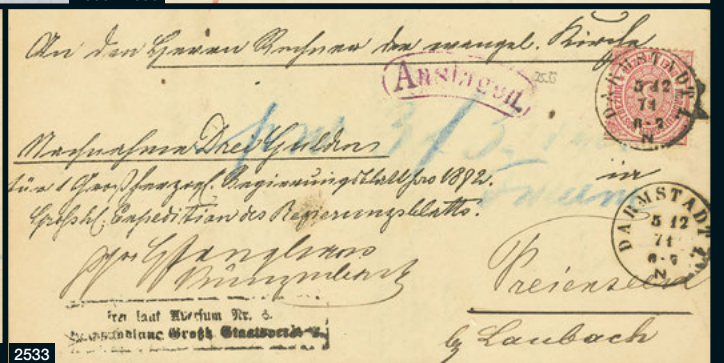 An den Herrn Rechner der evangel. Kirche
Auslagen.
DARMSTADT
5 12
71
6-7
N
Nachnahme Drei Gulden
für 1 Großherzogl. Regierungsblatt pro 1872.
in
Großh. Expedition des Regierungsblatts.
DARMSTADT
5 12
71
6-7
N
Freienseen
bey Laubach
frei laut Aversum Nr. 6.
Großh. Staatsverlag
2533